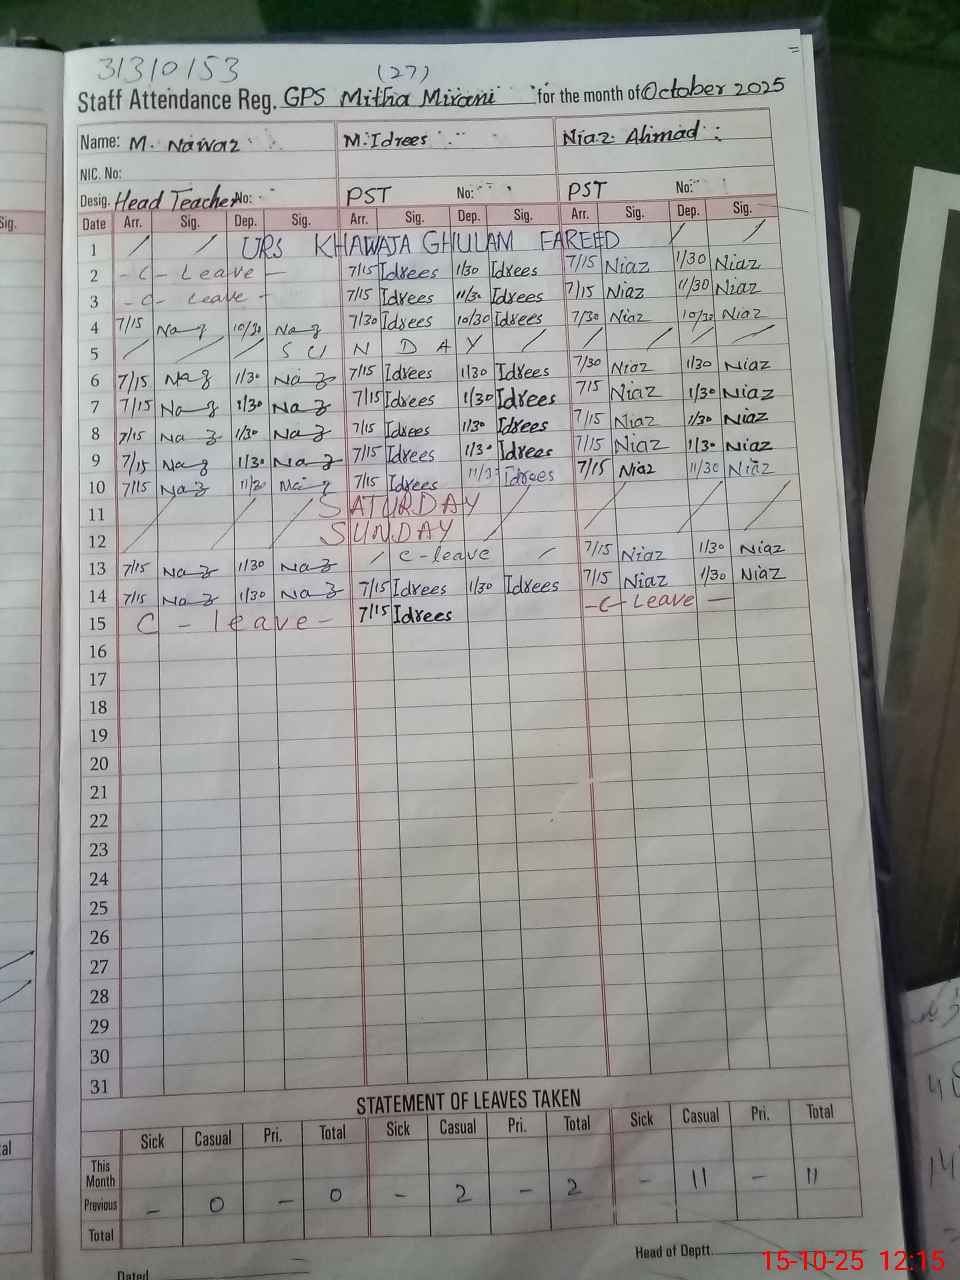 31310153 (27)
Staff Attendance Reg. GPS Mitha Mirani for the month of October 2025
Name: M. Nawaz M. Idrees Niaz Ahmad
NIC. No:
Desig. Head Teacher No: PST No: PST No:
Sig. Date Arr. Sig. Dep. Sig. Arr. Sig. Dep. Sig. Arr. Sig. Dep. Sig.
1 / / URS KHAWAJA GHULAM FAREED / /
2 - C - Leave - 7/15 Idrees 1/30 Idrees 7/15 Niaz 1/30 Niaz
3 - C - Leave - 7/15 Idrees 11/30 Idrees 7/15 Niaz 11/30 Niaz
4 7/15 Naz 10/30 Naz 7/30 Idrees 10/30 Idrees 7/30 Niaz 10/30 Niaz
5 / / / SUNDAY / / / / /
6 7/15 Naz 1/30 Naz 7/15 Idrees 1/30 Idrees 7/30 Niaz 1/30 Niaz
7 7/15 Naz 1/30 Naz 7/15 Idrees 1/30 Idrees 7/15 Niaz 1/30 Niaz
8 7/15 Naz 1/30 Naz 7/15 Idrees 1/30 Idrees 7/15 Niaz 1/30 Niaz
9 7/15 Naz 1/30 Naz 7/15 Idrees 1/30 Idrees 7/15 Niaz 1/30 Niaz
10 7/15 Naz 11/30 Naz 7/15 Idrees 11/30 Idrees 7/15 Niaz 11/30 Niaz
11 SATURDAY
12 SUNDAY
13 7/15 Naz 1/30 Naz / C-leave / 7/15 Niaz 1/30 Niaz
14 7/15 Naz 1/30 Naz 7/15 Idrees 1/30 Idrees 7/15 Niaz 1/30 Niaz
15 C - leave - 7/15 Idrees -C- Leave -
16
17
18
19
20
21
22
23
24
25
26
27
28
29
30
31
STATEMENT OF LEAVES TAKEN
Sick Casual Pri. Total Sick Casual Pri. Total Sick Casual Pri. Total
This Month
Previous - 0 - 0 - 2 - 2 - 11 - 11
Total
Dated Head of Deptt.
15-10-25 12:15